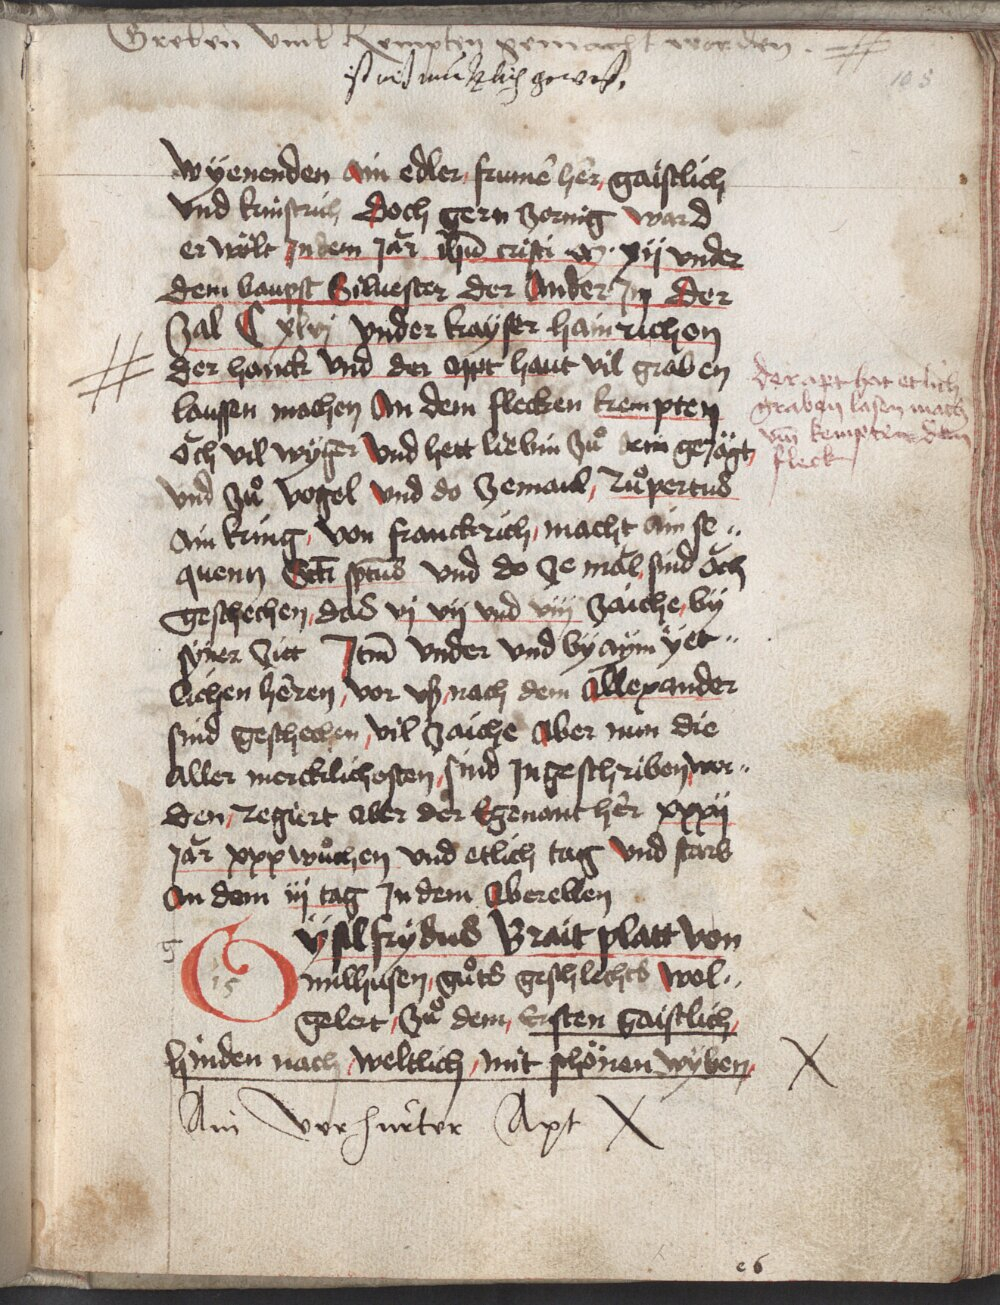 Greben vmb Kempten gemacht worden .
ist nit nutzlich gewest,
105
wyenenden ain edler, frume her, gaistlich
vnd kunstrich Doch gern zornig ward
er wolt In dem Jar ihu cristi M. xij vnder
dem baupst Siluester der Ander In Der
zal C xlvj vnder kayser hainrichen
der hanck vnd der appt haut vil graben
laussen machen An dem flecken kempten
och vil wyger vnd hett liebin zů dem geiägt,
vnd zů vogel vnd do zemaul, Růpertus
ain kung, von franckrich, macht ain se..
quenn Scti sptus vnd do ze mal, sind och
geschechen, das vj vij vnd viij zaiche, by
syner zitt Itm vnder vnd by aym yet..
lichen heren, vor vß, nach dem Allexander
sind geschechen, vil zaiche Aber nun die
aller mercklichosten, sind Ingeschriben, wor..
den, Regiert aber der Egenant her xxxij
Jar xxx wůchen vnd etlich tag vnd starb
An dem iij tag In dem Aberellen
der apt hat etlich
graben lasen mach
vm kempten dem
fleck
Gysilfrydus Brait platt von
15
milhusen, gůts geschlechts wol..
gelert, zů dem, Ersten gaistlich,
hinden nach, weltlich, mit schönen wyben,
Ain verhurter Apt
e 6